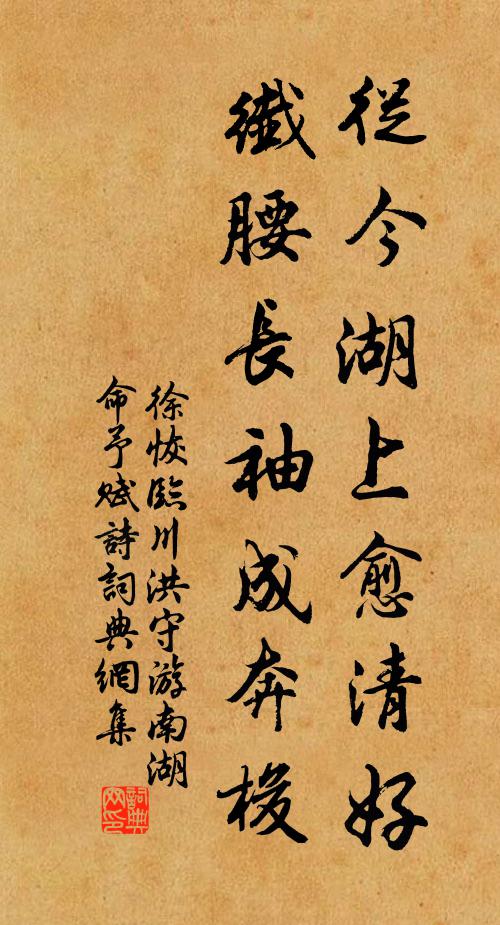 從今湖上愈清好
纖腰長袖成奔梭
徐恢臨川洪守游南湖
命予賦詩詞典網集
詞典
網印